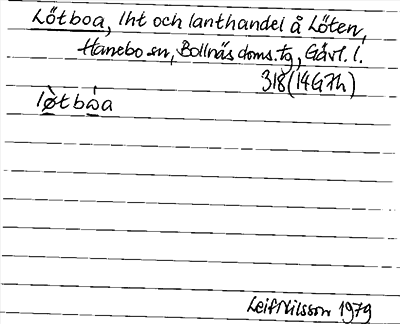 Lötboa, lht och lanthandel å Löten,
Hanebo sn, Bollnäs doms.tg, Gävl. l.
318 (14G7h)
lø̀tbὼa
Leif Nilsson 1979